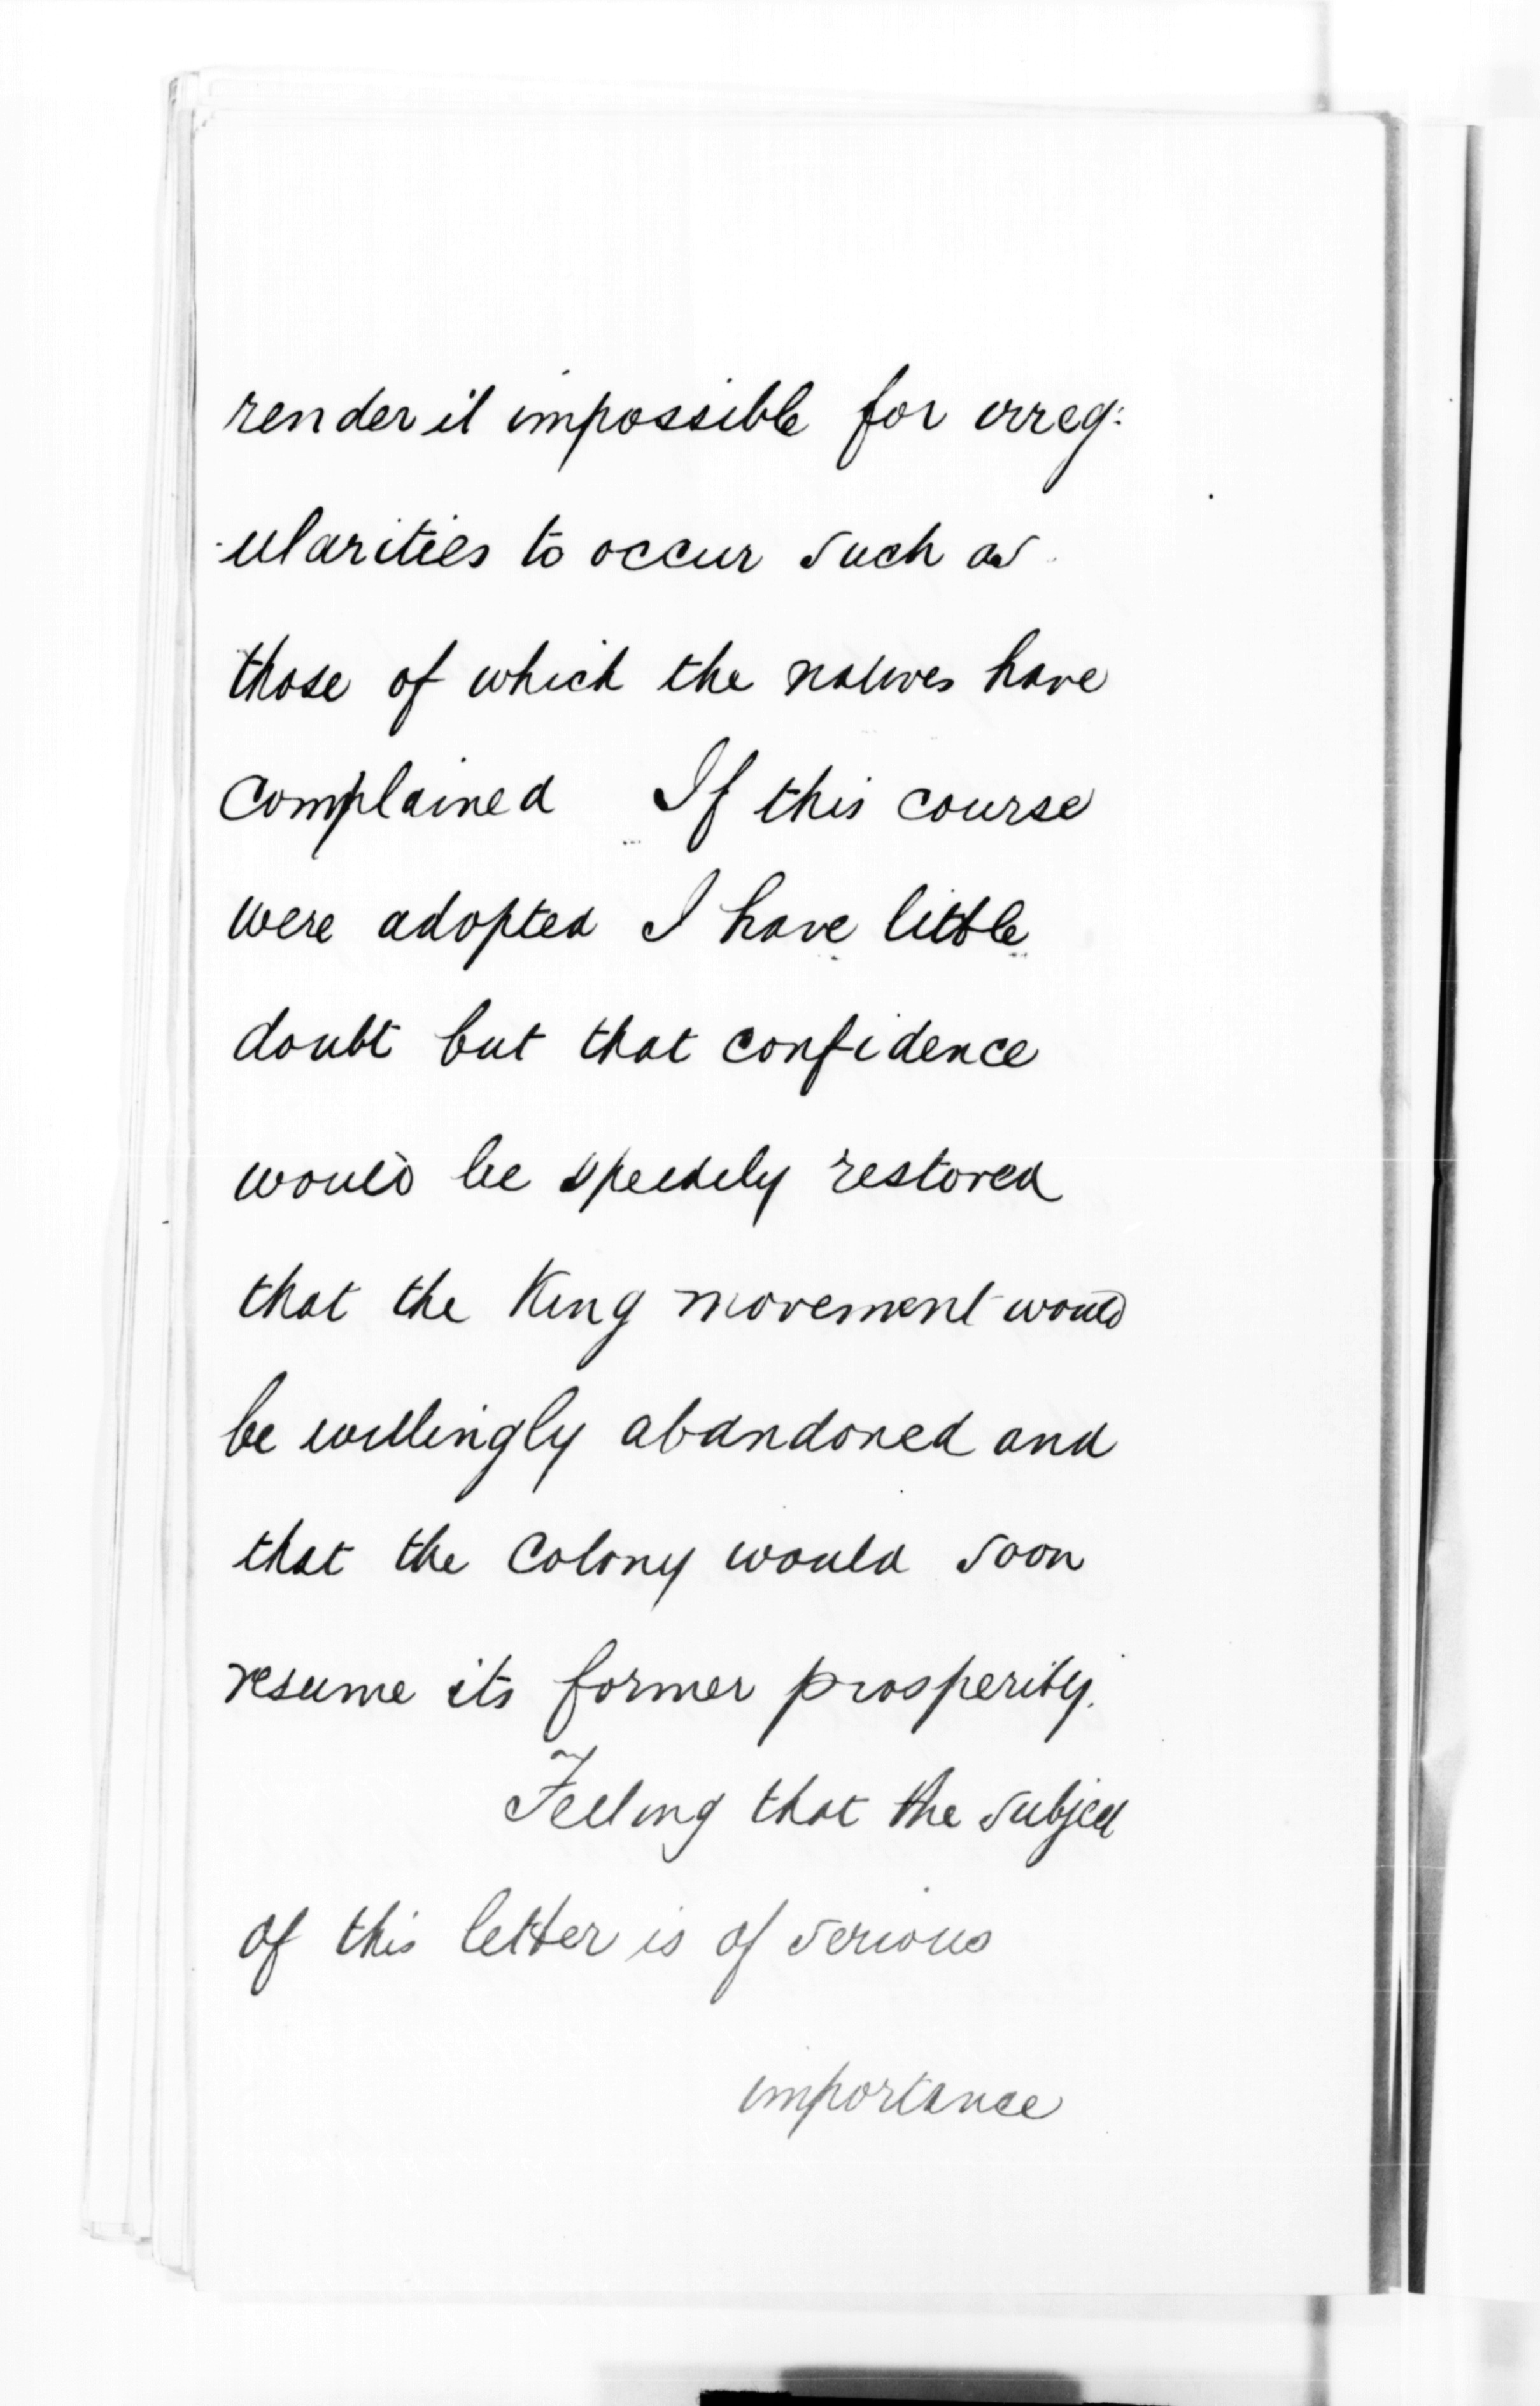 render it impossible for irreg:
-ularities to occur such as
those of which the natives have
complained If this course
were adopted I have little
doubt but that confidence
would be speedily restored
that the King movement would
be willingly abandoned and
that the Colony would soon
resume its former prosperity.
Feeling that the subject
of this letter is of serious
importance